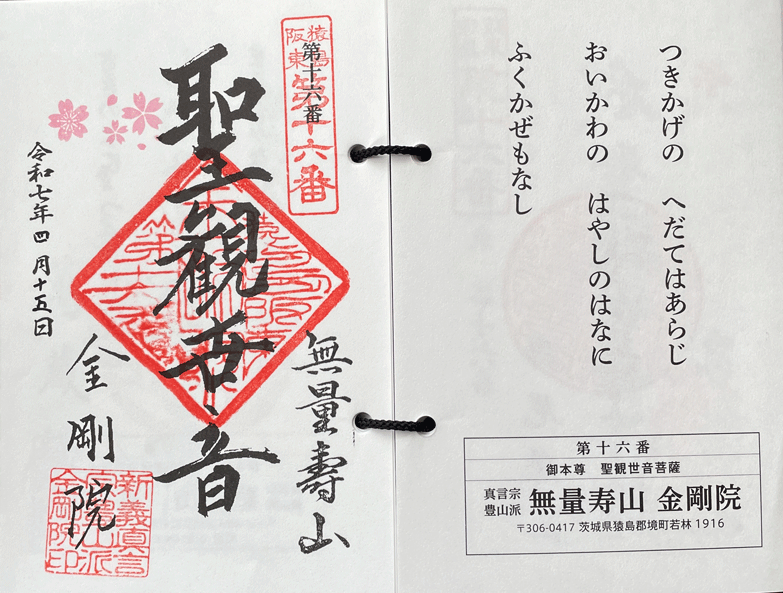 つきかげの　へだてはあらじ
おいかわの　はやしのはなに
ふくかぜもなし
第十六番
御本尊　聖観世音菩薩
真言宗
豊山派
無量寿山 金剛院
〒306-0417 茨城県猿島郡境町若林 1916
猿島
阪東
第十六番
第十六番
無量壽山
聖観世音
令和七年四月十五日
金剛院
新義真言
宗豊山派
金剛院印